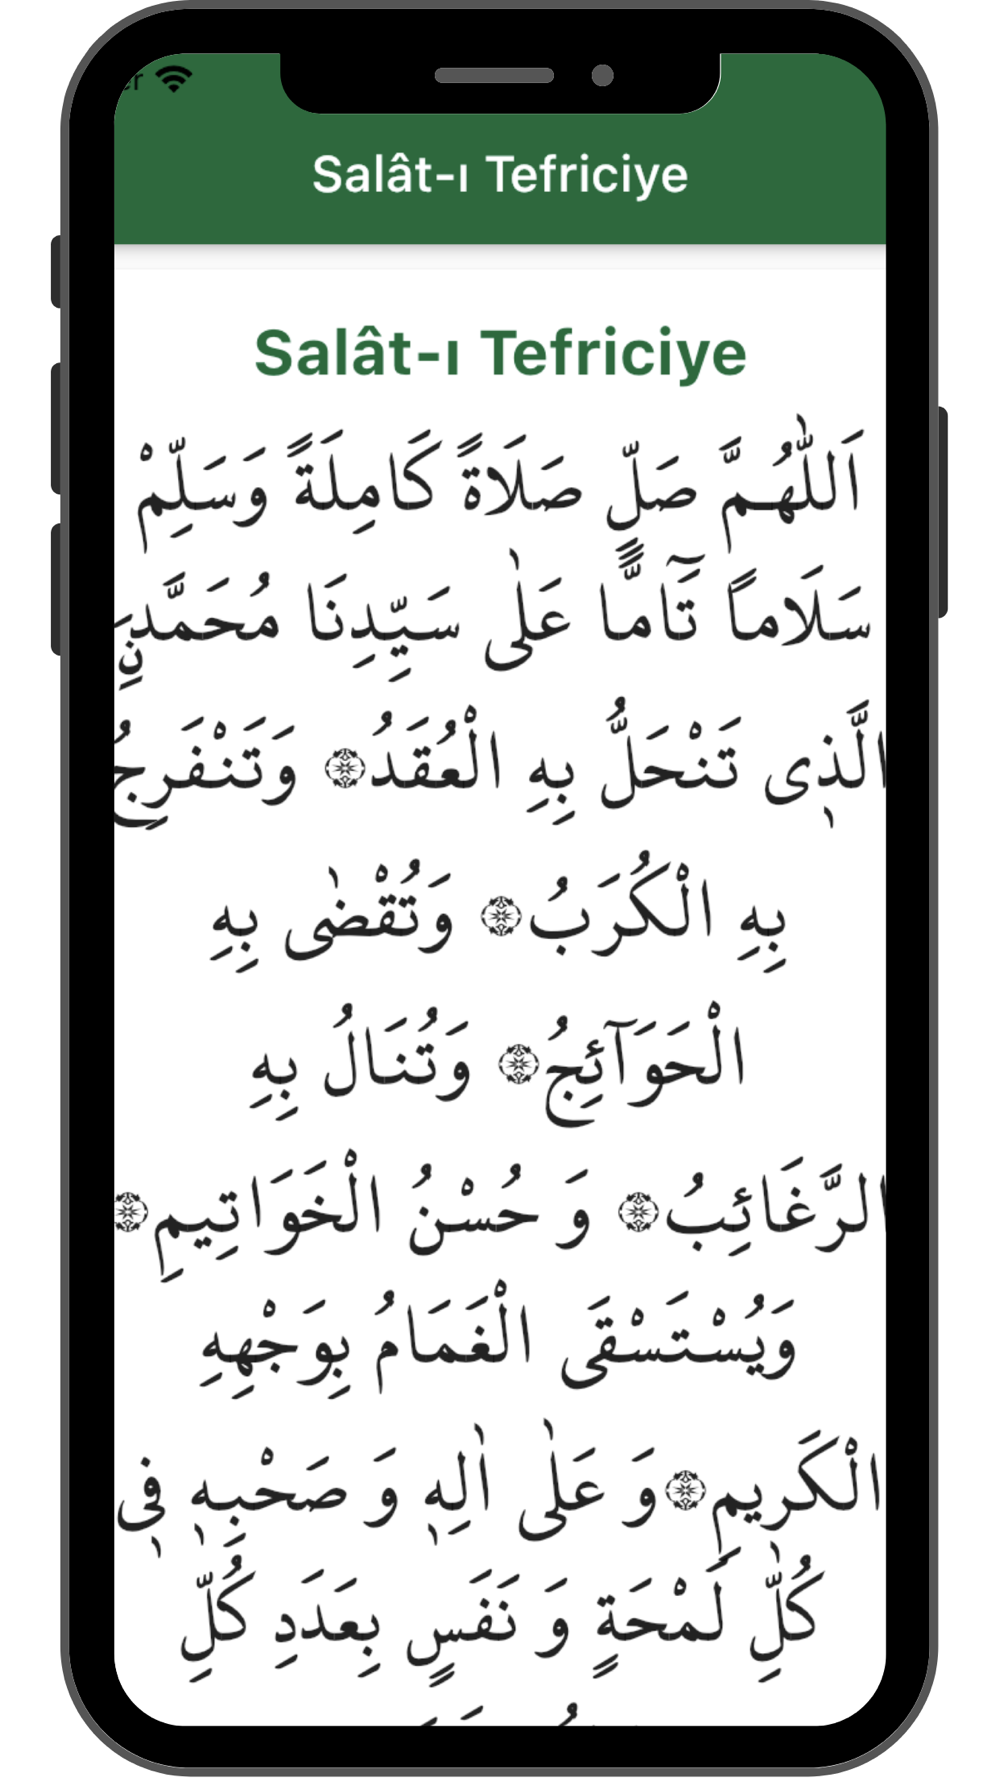 Salât-ı Tefriciye
Salât-ı Tefriciye
اَللّٰهُمَّ صَلِّ صَلَاةً كَامِلَةً وَسَلِّمْ
سَلَاماً تَآمًّا عَلٰى سَيِّدِنَا مُحَمَّدٍنِ
الَّذٖى تَنْحَلُّ بِهِ الْعُقَدُ۞ وَتَنْفَرِجُ
بِهِ الْكُرَبُ۞ وَتُقْضٰى بِهِ
الْحَوَآئِجُ۞ وَتُنَالُ بِهِ
الرَّغَائِبُ۞ وَ حُسْنُ الْخَوَاتِيمِ۞
وَيُسْتَسْقَى الْغَمَامُ بِوَجْهِهِ
الْكَرِيمِ۞وَ عَلٰى اٰلِهٖ وَ صَحْبِهٖ فٖى
كُلِّ لَمْحَةٍ وَ نَفَسٍ بِعَدَدِ كُلِّ